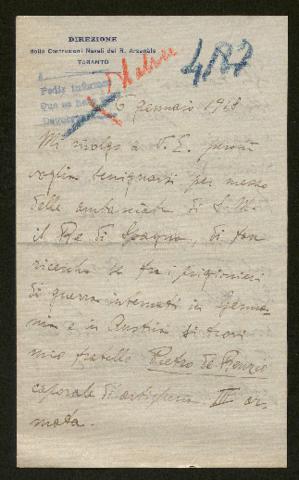 DIREZIONE
delle Costruzioni Navali del R. Arsenale
TARANTO
4187
Pedir informes
Que se ha
6 gennaio 1918
Mi rivolgo a V. E. perché
voglia benignarsi per mezzo
delle ambasciate di S. M.
il Re di Spagna, di far
ricerche se tra i prigionieri
di guerra internati in Germa-
nia e in Austria si trovi
mio fratello Pietro de Renzio
caporale d'artiglieria III ar-
mata.